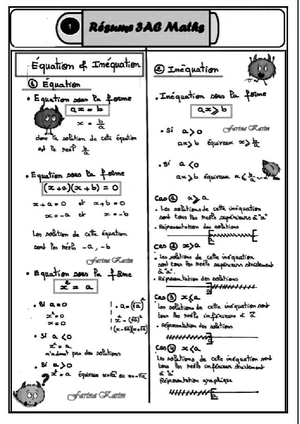 1 Résumé 3AC Maths
Équation & Inéquation
① Équation
• Equation sous la forme
ax = b
x = b/a
donc la solution de cette équation
est le réel b/a
• Equation sous la forme
(x+a)(x+b) = 0
x+a=0 et x+b=0
x=-a et x=-b
Les solution de cette équation
sont les réels -a, -b
Farina Karim
• Equation sous la forme
x² = a
• Si a=0
x²=0
x=0
• Si a<0
x²=a
n'admet pas des solutions
• Si a>0
x²=a équivaux x=√a ou x=-√a
Farina Karim
② Inéquation
• Inéquation sous la forme
ax ≥ b
Farina Karim
• Si a>0
ax≥b équivaux x≥b/a
• Si a<0
ax≥b équivaux x≤b/a
Cas ① x≥a
• Les solutions de cette inéquation
sont tous les réels supérieurs à "a"
• Représentation des solutions
Cas ② x>a
• les solutions de cette inéquation
sont tous les réels supérieurs strictement
à "a"
• Représentation des solutions
Cas ③ x≤a
• les solutions de cette inéquation sont
tous les réels inférieurs à "a"
• Représentation des solutions
Cas ④ x<a
les solutions de cette inéquation sont
tous les réels inférieurs strictement
à "a"
Représentation graphique